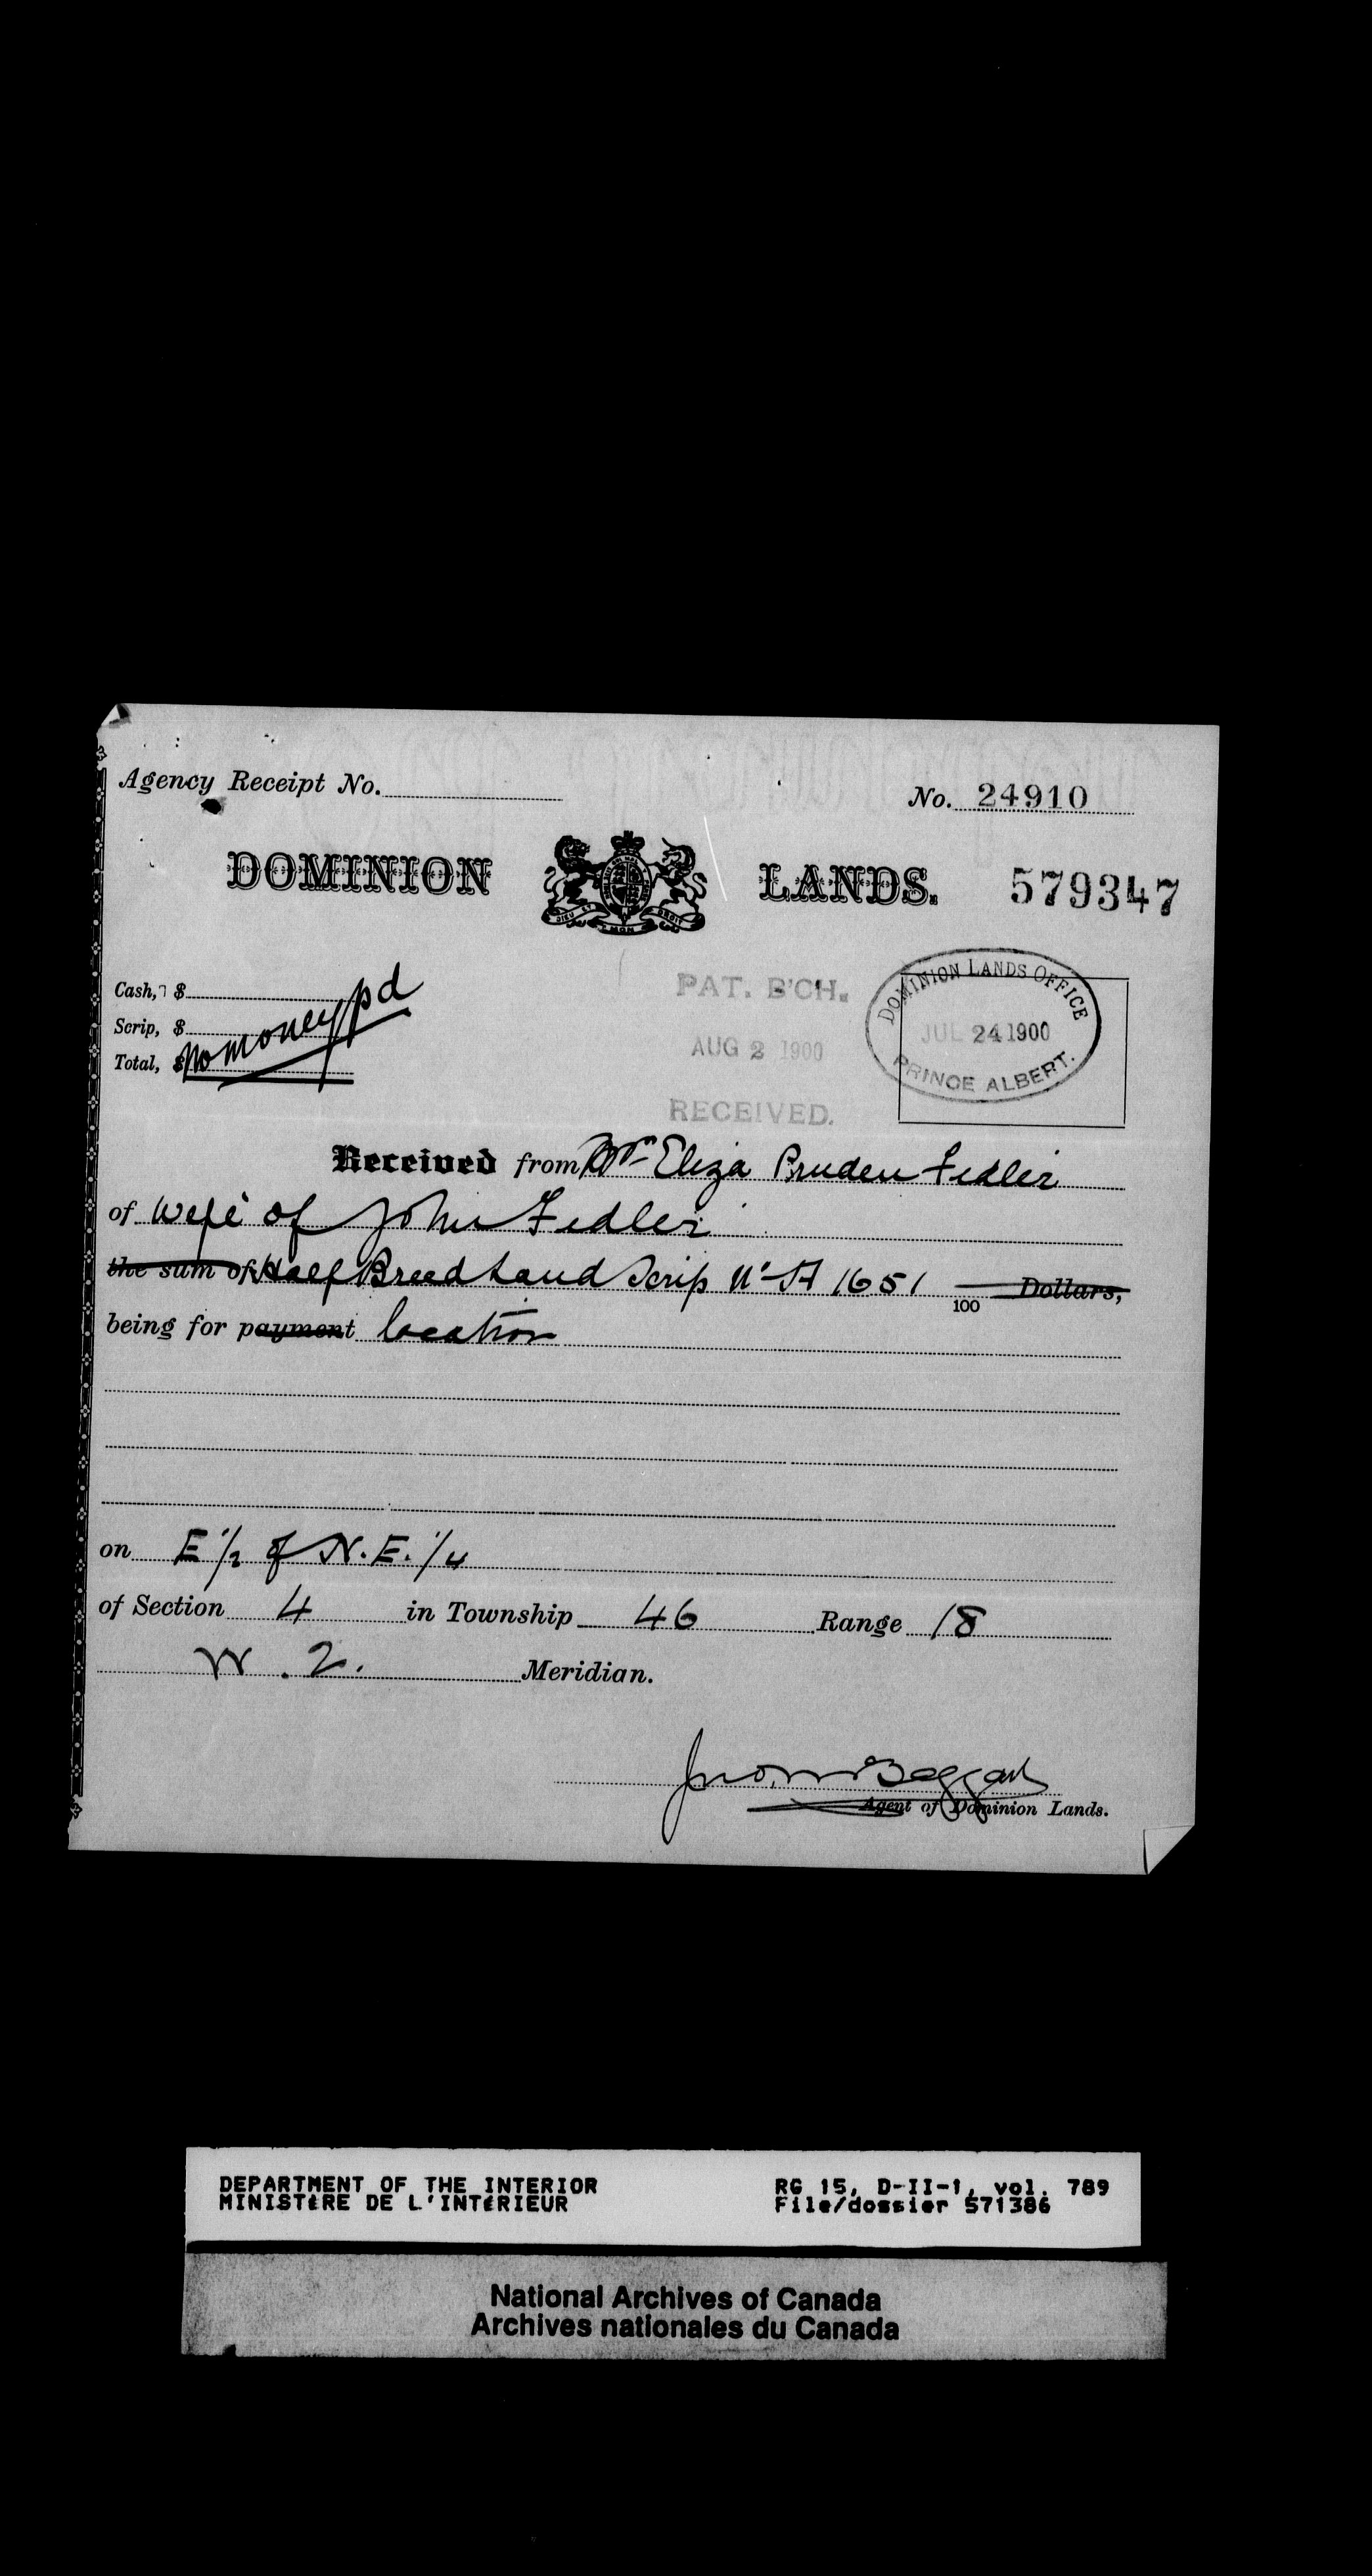 Agency Receipt No.
No. 24910
DOMINION LANDS. 579347
DIEU ET MON DROIT
Cash, $
Scrip, $
Total, $
No money pd
PAT. B'CH.
AUG 2 1900
RECEIVED.
DOMINION LANDS OFFICE
JUL 24 1900
PRINCE ALBERT.
Received from Mrs Eliza Pruden Fidler
of wife of John Fidler
the sum of Half Breed Land Scrip No A 1651 100 Dollars,
being for payment location
on E 1/2 of N.E. 1/4
of Section 4 in Township 46 Range 18
W. 2. Meridian.
Jno.
Agent of Dominion Lands.
DEPARTMENT OF THE INTERIOR RG 15, D-II-1, vol. 789
MINISTÈRE DE L'INTÉRIEUR File/dossier 571386
National Archives of Canada
Archives nationales du Canada